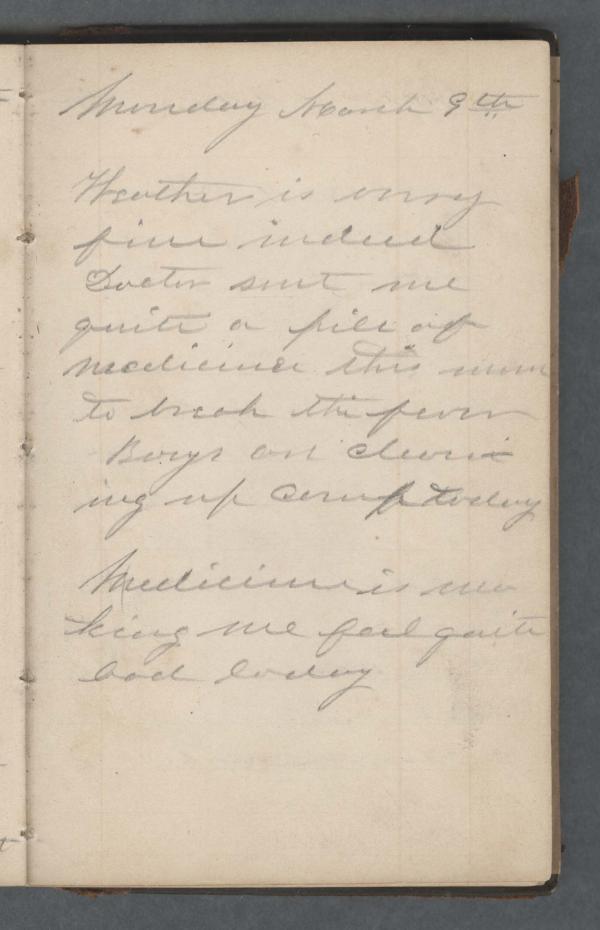 Monday March 9th
Weather is very
fine indeed
Doctor sent me
quite a pile of
medicine this morn
to break the fever
Boys are clean-
ing up camp today
Medicine is ma
king me feel quite
bad today